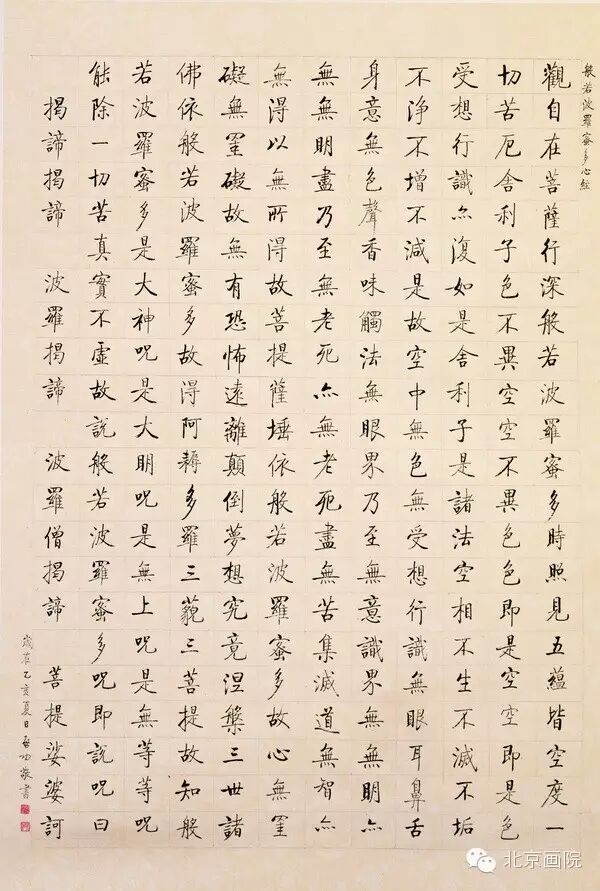 般若波羅蜜多心經
觀自在菩薩行深般若波羅蜜多時照見五蘊皆空度一
切苦厄舍利子色不異空空不異色色即是空空即是色
受想行識亦復如是舍利子是諸法空相不生不滅不垢
不淨不增不減是故空中無色無受想行識無眼耳鼻舌
身意無色聲香味觸法無眼界乃至無意識界無無明亦
無無明盡乃至無老死亦無老死盡無苦集滅道無智亦
無得以無所得故菩提薩埵依般若波羅蜜多故心無罣
礙無罣礙故無有恐怖遠離顛倒夢想究竟涅槃三世諸
佛依般若波羅蜜多故得阿耨多羅三藐三菩提故知般
若波羅蜜多是大神呪是大明呪是無上呪是無等等呪
能除一切苦真實不虛故說般若波羅蜜多呪即說呪曰
揭諦揭諦 波羅揭諦 波羅僧揭諦 菩提娑婆訶
歲在乙亥夏日啓功敬書
北京画院